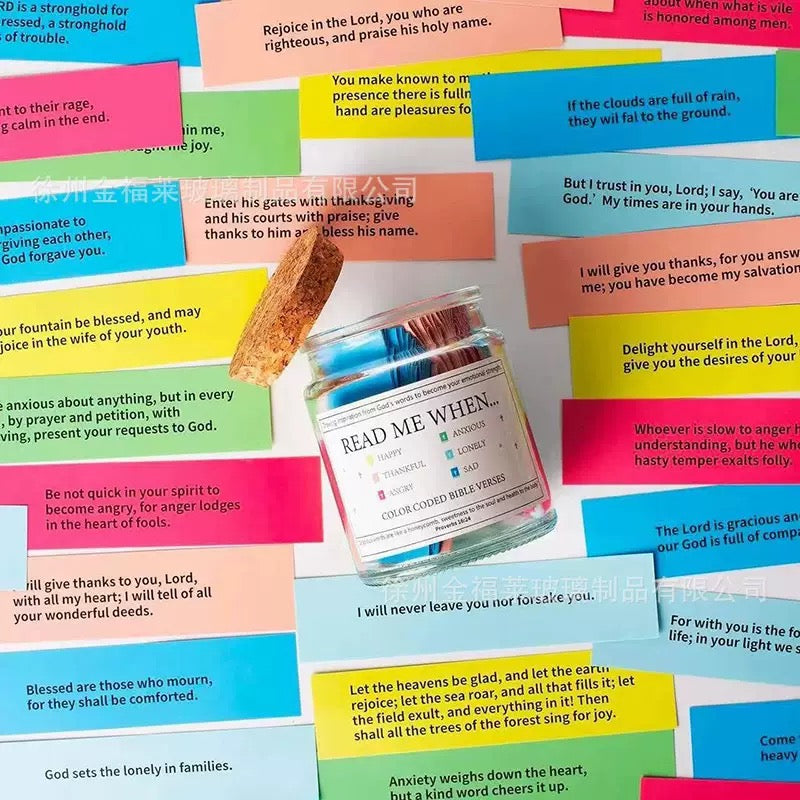 RD is a stronghold for
ressed, a stronghold
s of trouble.
Rejoice in the Lord, you who are
righteous, and praise his holy name.
about when what is vile
is honored among men.
nt to their rage,
g calm in the end.
in me,
me joy.
You make known to m
presence there is fulln
hand are pleasures fo
If the clouds are full of rain,
they wil fal to the ground.
徐州金福莱玻璃制品有限公司
Enter his gates with thanksgiving
and his courts with praise; give
thanks to him an bless his name.
But I trust in you, Lord; I say, 'You are
God.' My times are in your hands.
mpassionate to
rgiving each other,
God forgave you.
I will give you thanks, for you answ
me; you have become my salvation
our fountain be blessed, and may
joice in the wife of your youth.
Delight yourself in the Lord,
give you the desires of your
e anxious about anything, but in every
, by prayer and petition, with
ving, present your requests to God.
Drawing inspiration from God's words to become your emotional strength
READ ME WHEN...
HAPPY
THANKFUL
ANGRY
ANXIOUS
LONELY
SAD
COLOR CODED BIBLE VERSES
Gracious words are like a honeycomb, sweetness to the soul and health to the body
Proverbs 16:24
Whoever is slow to anger h
understanding, but he who
hasty temper exalts folly.
Be not quick in your spirit to
become angry, for anger lodges
in the heart of fools.
The Lord is gracious and
our God is full of compa
ill give thanks to you, Lord,
with all my heart; I will tell of all
your wonderful deeds.
徐州金福莱玻璃制品有限公司
I will never leave you nor forsake you.
For with you is the fo
life; in your light we s
Blessed are those who mourn,
for they shall be comforted.
Let the heavens be glad, and let the earth
rejoice; let the sea roar, and all that fills it; let
the field exult, and everything in it! Then
shall all the trees of the forest sing for joy.
God sets the lonely in families.
Anxiety weighs down the heart,
but a kind word cheers it up.
Come
heavy